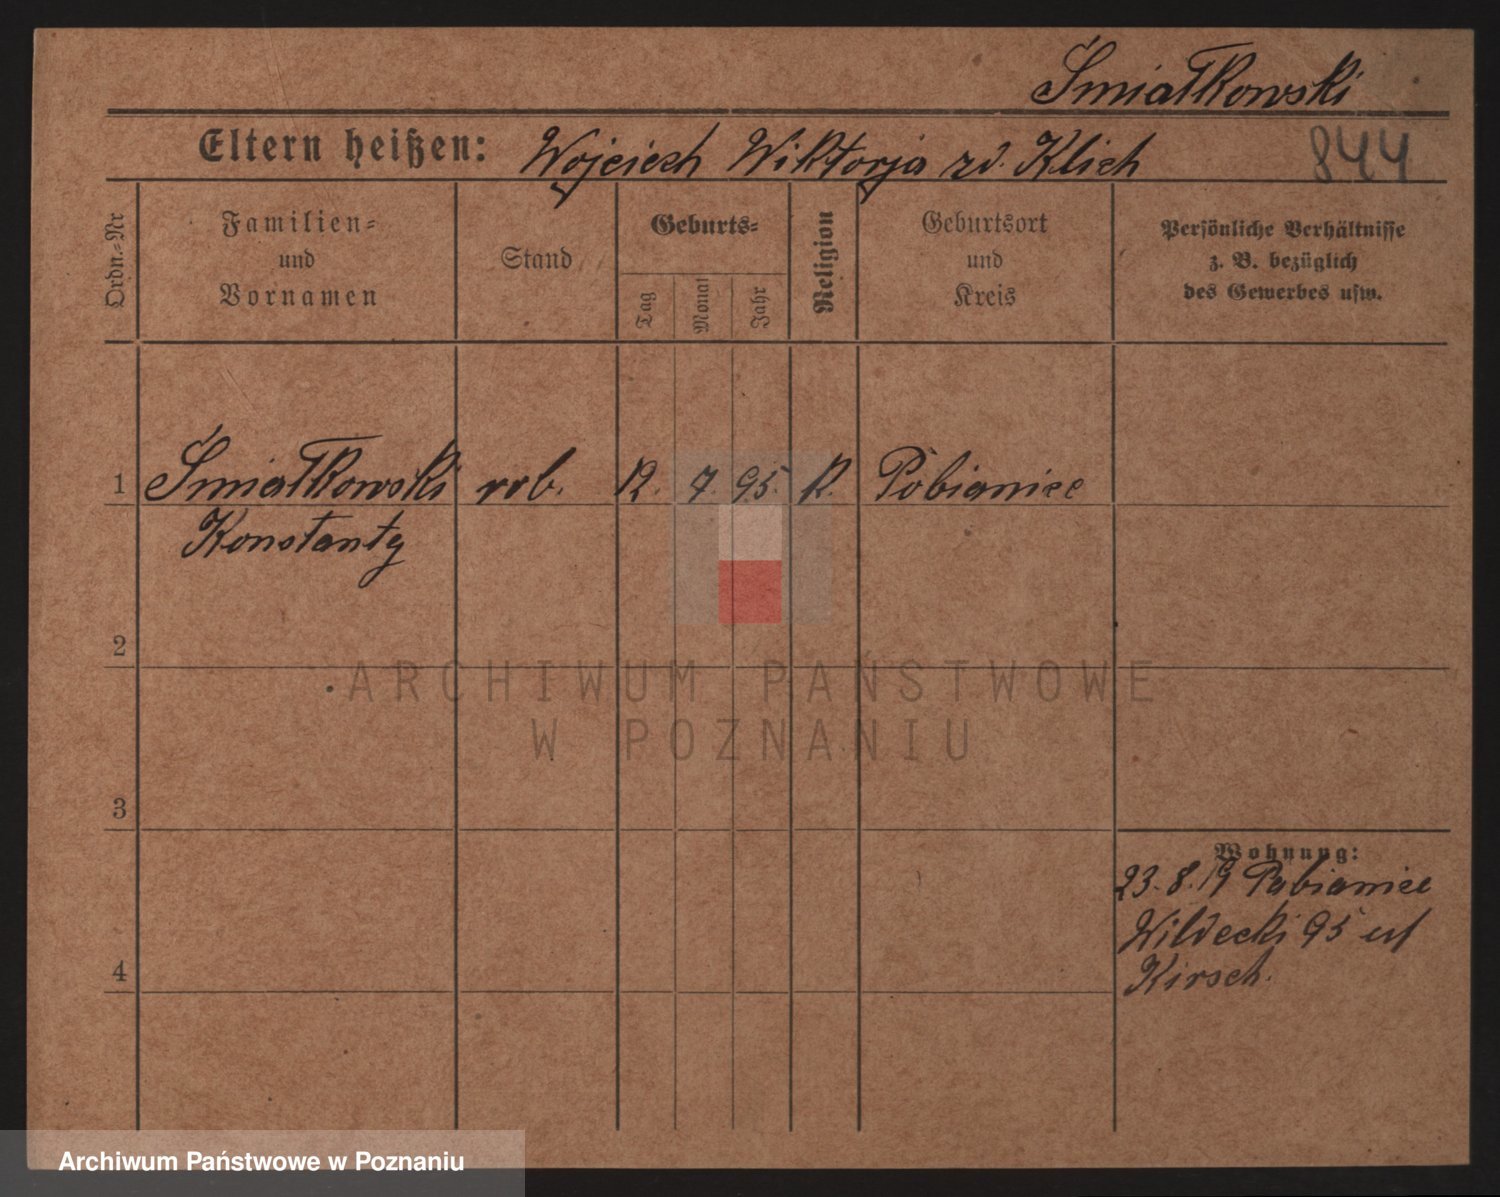 Śmiałkowski
Eltern heißen: Wojciech Wiktorja zd. Klich 844
Ordn.-Nr
Familien-
und
Vornamen
Stand
Geburts-
Tag
Monat
Jahr
Religion
Geburtsort
und
Kreis
Persönliche Verhältnisse
z. B. bezüglich
des Gewerbes usw.
1 Śmiałkowski rob. 12. 7. 95. K. Pabianice
Konstanty
2
3
4
Wohnung:
23. 8. 19 Pabianice
Wildecki 95 u/
Kirsch.
ARCHIWUM PAŃSTWOWE
W POZNANIU
Archiwum Państwowe w Poznaniu